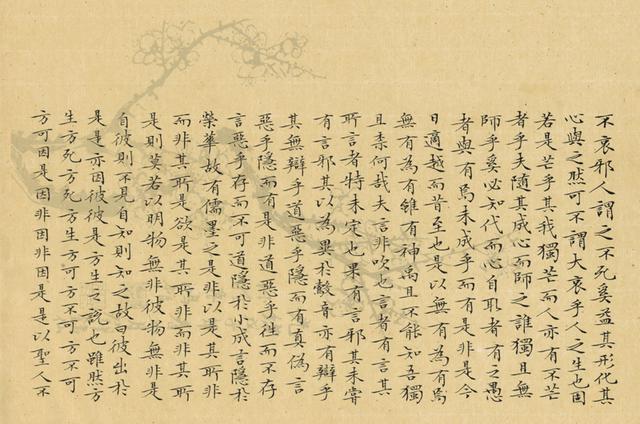 不哀邪人謂之不死奚益其形化其
心與之然可不謂大哀乎人之生也固
若是芒乎其我獨芒而人亦有不芒
者乎夫隨其成心而師之誰獨且無
師乎奚必知代而心自取者有之愚
者與有焉未成乎而有是非是今
日適越而昔至也是以無有為有為
無有為有雖有神禹且不能知吾獨
且柰何哉夫言非吹也言者有言其
所言者特未定也果有言邪其未嘗
有言邪其以為異於鷇音亦有辯乎
其無辯乎道惡乎隱而有真偽言
惡乎隱而有是非道惡乎往而不存
言惡乎存而不可道隱於小成言隱於
榮華故有儒墨之是非以是其所非
而非其所是欲是其所非而非其所
是則莫若以明物無非彼物無非是
自彼則不見自知則知之故曰彼出於
是是亦因彼彼是方生之說也雖然方
生方死方死方生方可方不可方不可
方可因是因非因非因是是以聖人不